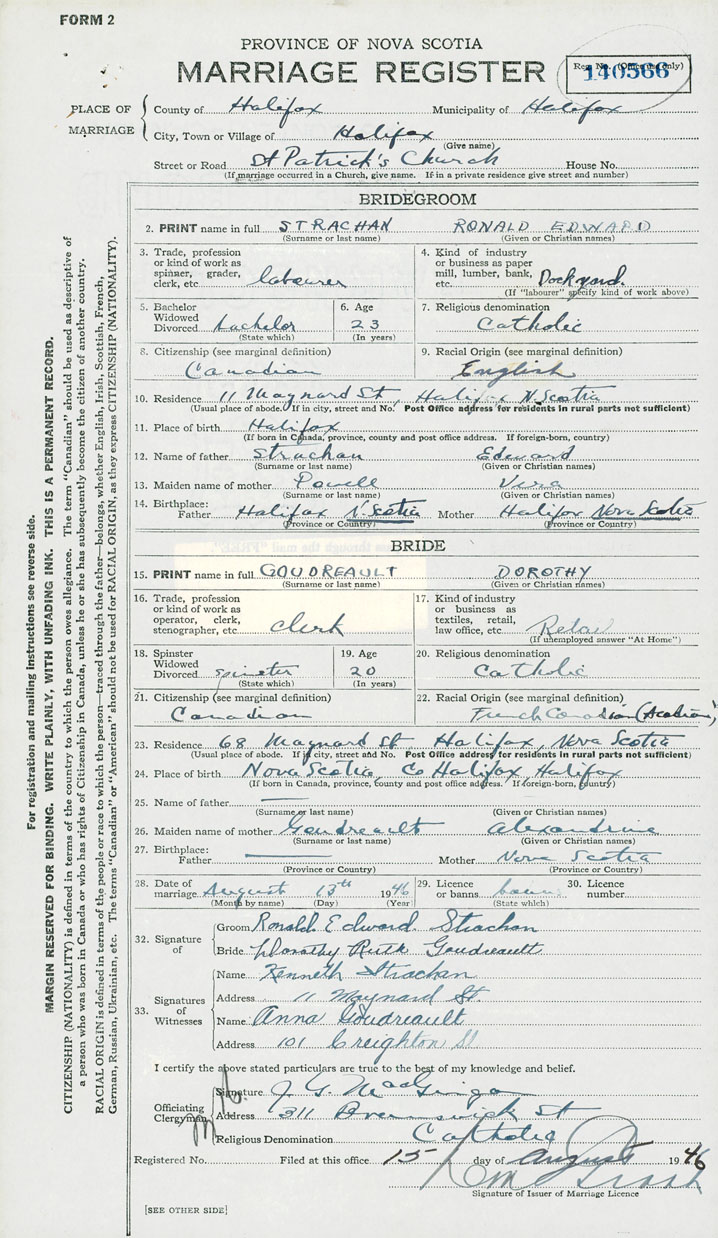 FORM 2
PROVINCE OF NOVA SCOTIA
MARRIAGE REGISTER
Reg. No. (Office use only)
140566
PLACE OF MARRIAGE
County of Halifax Municipality of Halifax
City, Town or Village of Halifax
(Give name)
Street or Road St Patrick's Church House No.
(If marriage occurred in a Church, give name. If in a private residence give street and number)
BRIDEGROOM
2. PRINT name in full STRACHAN RONALD EDWARD
(Surname or last name) (Given or Christian names)
3. Trade, profession or kind of work as spinner, grader, clerk, etc. labourer
4. Kind of industry or business as paper mill, lumber, bank, etc. Dockyard.
(If "labourer" specify kind of work above)
5. Bachelor Widowed Divorced bachelor
(State which)
6. Age 23
(In years)
7. Religious denomination
Catholic
8. Citizenship (see marginal definition)
Canadian
9. Racial Origin (see marginal definition)
English
10. Residence 11 Maynard St, Halifax N. Scotia
(Usual place of abode. If in city, street and No. Post Office address for residents in rural parts not sufficient)
11. Place of birth Halifax
(If born in Canada, province, county and post office address. If foreign-born, country)
12. Name of father Strachan Edward
(Surname or last name) (Given or Christian names)
13. Maiden name of mother Powell Vera
(Surname or last name) (Given or Christian names)
14. Birthplace: Father Halifax N. Scotia Mother Halifax Nova Scotia
(Province or Country) (Province or Country)
BRIDE
15. PRINT name in full GOUDREAULT DOROTHY
(Surname or last name) (Given or Christian names)
16. Trade, profession or kind of work as operator, clerk, stenographer, etc. clerk
17. Kind of industry or business as textiles, retail, law office, etc.
(If unemployed answer "At Home")
18. Spinster Widowed Divorced spinster
(State which)
19. Age 20
(In years)
20. Religious denomination
Catholic
21. Citizenship (see marginal definition)
Canadian
22. Racial Origin (see marginal definition)
French Canadian (Acadian)
23. Residence 68 Maynard St Halifax, Nova Scotia
(Usual place of abode. If in city, street and No. Post Office address for residents in rural parts not sufficient)
24. Place of birth Nova Scotia, Co Halifax, Halifax
(If born in Canada, province, county and post office address. If foreign-born, country)
25. Name of father —
(Surname or last name) (Given or Christian names)
26. Maiden name of mother Goudreault Alexandrine
(Surname or last name) (Given or Christian names)
27. Birthplace: Father — Mother Nova Scotia
(Province or Country) (Province or Country)
28. Date of marriage August 13th 1946
(Month by name) (Day) (Year)
29. Licence or banns banns
(State which)
30. Licence number
32. Signature of
Groom Ronald Edward Strachan
Bride Dorothy Ruth Goudreault
33. Signatures of Witnesses
Name Kenneth Strachan
Address 11 Maynard St.
Name Anna Goudreault
Address 101 Creighton St
I certify the above stated particulars are true to the best of my knowledge and belief.
Officiating Clergyman
Signature J. G.
Address 311 Brunswick St
Religious Denomination Catholic
Registered No. Filed at this office 15 day of August 1946
Signature of Issuer of Marriage Licence
[SEE OTHER SIDE]
For registration and mailing instructions see reverse side.
MARGIN RESERVED FOR BINDING. WRITE PLAINLY, WITH UNFADING INK. THIS IS A PERMANENT RECORD.
CITIZENSHIP (NATIONALITY) is defined in terms of the country to which the person owes allegiance. The term "Canadian" should be used as descriptive of
a person who was born in Canada or who has rights of Citizenship in Canada, unless he or she has subsequently become the citizen of another country.
RACIAL ORIGIN is defined in terms of the people or race to which the person—traced through the father—belongs, whether English, Irish, Scottish, French,
German, Russian, Ukrainian, etc. The terms "Canadian" or "American" should not be used for RACIAL ORIGIN, as they express CITIZENSHIP (NATIONALITY).